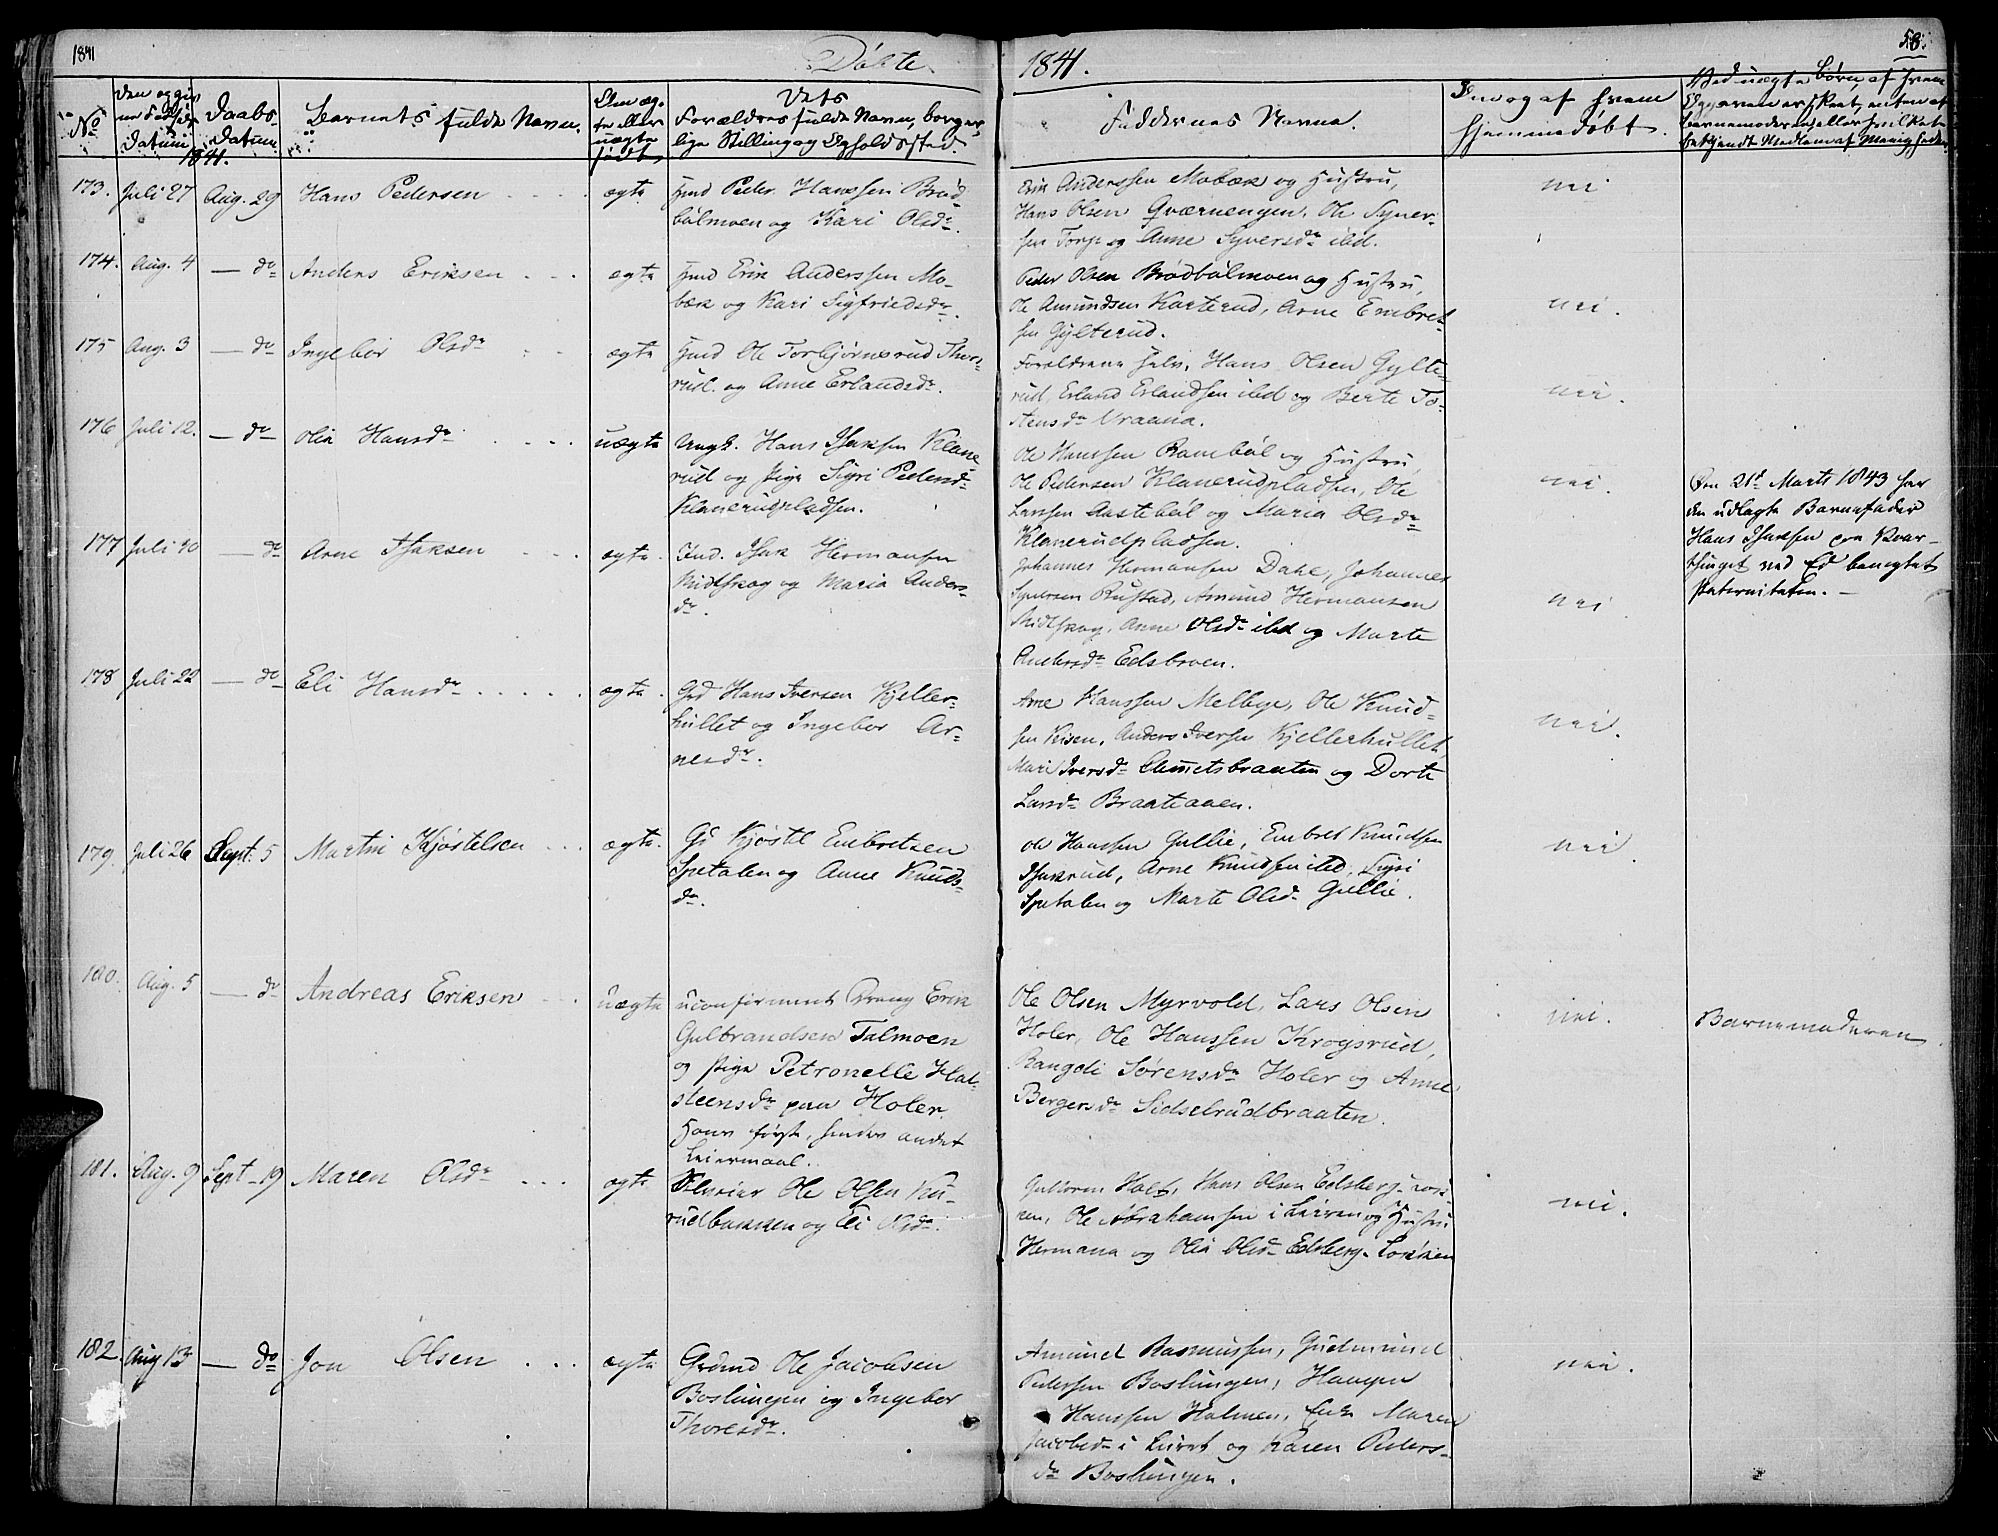 1841
Døbte
1841.
58.
No
Den opgivne Fødsels Datum
Daabs Datum
Barnets fulde Navn.
Om ægte eller uægte født
Dets Forældres fulde Navn, borgerlige Stilling og Opholdssted.
Faddernes Navne.
Om og af hvem hjemmedøbt.
Ved uægte Børn, af hvem
1841.
173. Juli 27 Aug. 29 Hans Pedersen ægte
Hmd Peder Hanssen Brød-
bølmoen og Kari Olsdr.
Erik Anderssen Mobæk og Hustru,
Hans Olsen Qværnengen, Ole Syver-
sen Torp og Anne Syversdr ibd.
nei
174. Aug. 4 — do Anders Eriksen ægte
Hmd Erik Anderssen Mo-
bæk og Kari Sigfriedsdr.
Peder Olsen Brødbølmoen og Hustru,
Ole Amundsen Karterud, Arne Embret-
sen Gylterud.
nei.
175 Aug. 3 — do Ingebor Olsdr ægte
Hmd Ole Torbjørnsrud Thor-
rud. og Anne Erlandsdr.
Forældrene selv, Hans Olsen Gylte-
rud, Erland Erlandsen ibd og Berte To-
stensdr Vraana.
nei.
176 Juli 12. — do Olia Hansdr uægte
Ungk. Hans Isaksen Klane
rud og Pige Siyri Pedersdr
Klanerudpladsen.
Ole Hanssen Rambøl og Hustru,
Ole Pedersen Klanerudpladsen, Ole
Larssen Aastebøl og Maria Olsdr
Klanerudpladsen.
nei.
Den 21d Marts 1843 har
den udlagte Barnefader
Hans Isaksen paa Kvar-
thinget ved Ed benegtet
Paterniteten. —
177 Juli 10 — do Arne Isaksen ægte.
Ind. Isak Hermansen
Midtskog og Maria Anders-
dr.
Johannes Hermansen Dahl, Johannes
Syversen Rustad, Amund Hermansen
Midtskog, Anne Olsdr ibd og Marte
Andersdr Edsbroen.
nei
178 Juli 22 — do Eli Hansdr ægte.
Grd Hans Iversen Kjeller-
hullet og Ingebor Ar-
nesdr.
Arne Hanssen Melbye, Ole Knud-
sen Visen, Anders Iversen Kjellerhullet
Mari Iversdr Aametsbraaten og Dorte
Larsdr Braateaaen.
nei.
179. Juli 26 Sept. 5 Martin Kjøstelsen ægte.
Gs Kjøstel Embretsen
Spetalen og Anne Knuds-
dr.
Ole Hanssen Gullie, Embret Knudsen
Isakrud, Arne Knudsen ibd, Siyri
Spetalen og Marte Olsdr Gullie.
nei.
180. Aug. 5 — do Andreas Eriksen uægte
uconfirmeret Dreng Erik
Gulbrandsen Talmoen
og Pige Petronelle Hal-
steensdr paa Holer.
Hans første, hendes andet
Leiermaal.
Ole Olsen Myrvold, Lars Olsen
Holer, Ole Hanssen Krogsrud,
Rangdi Sørensdr Holer og Anne
Bergersdr Sidselrudbraaten.
nei.
Barnemoderen
181. Aug. 9 Sept. 19 Maren Olsdr ægte
Ole Olsen Ku-
rudbakken og Eli Olsdr.
Guttorm Holt, Hans Olsen Edsberg-Løk-
ken, Ole Abrahamsen i Leiren og Hustru
Hermana og Olia Olsdr Edsberg-Løkken
nei.
182. Aug 13 — do Jon Olsen ægte
Grdmd Ole Jacobsen
Boslungen og Ingebor
Thoresdr.
Amund Rasmussen, Gudmund
Pedersen Boslungen, Haagen
Hanssen Holmen, Enke Maren
Jacobsdr i Livret og Karen Peders-
dr Boslungen.
nei.